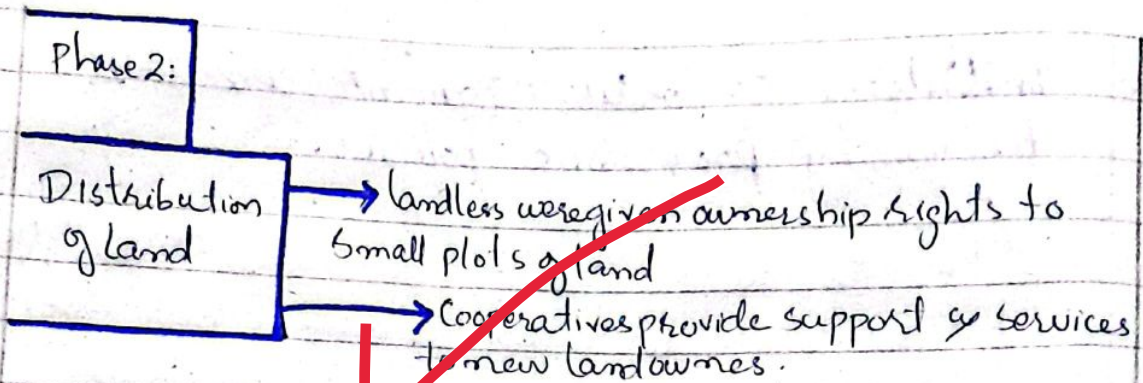 Phase 2:
Distribution
of Land
landless were given ownership rights to
Small plots of land
Cooperatives provide support & services
to new landownes.